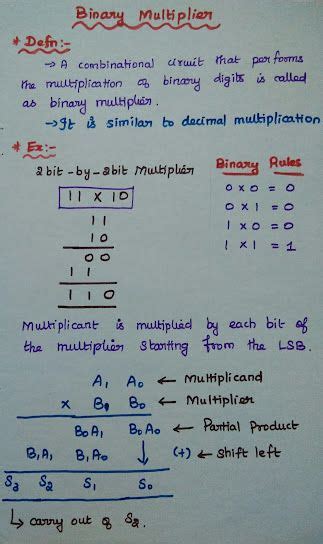 Binary Multiplier
* Defn:-
→ A combinational circuit that performs
the multiplication of binary digits is called
as binary multiplier.
→ It is similar to decimal multiplication
* Ex:-
2bit-by-2bit Multiplier
11 x 10
11
10
00
11
110
Binary Rules
0 x 0 = 0
0 x 1 = 0
1 x 0 = 0
1 x 1 = 1
Multiplicant is multiplied by each bit of
the multiplier starting from the LSB.
A₁ A₀ ← Multiplicand
x B₁ B₀ ← Multiplier
B₀A₁ B₀A₀ ← Partial Product
B₁A₁ B₁A₀ ↓ (+) ← shift left
S₃ S₂ S₁ S₀
↳ carry out of S₂.